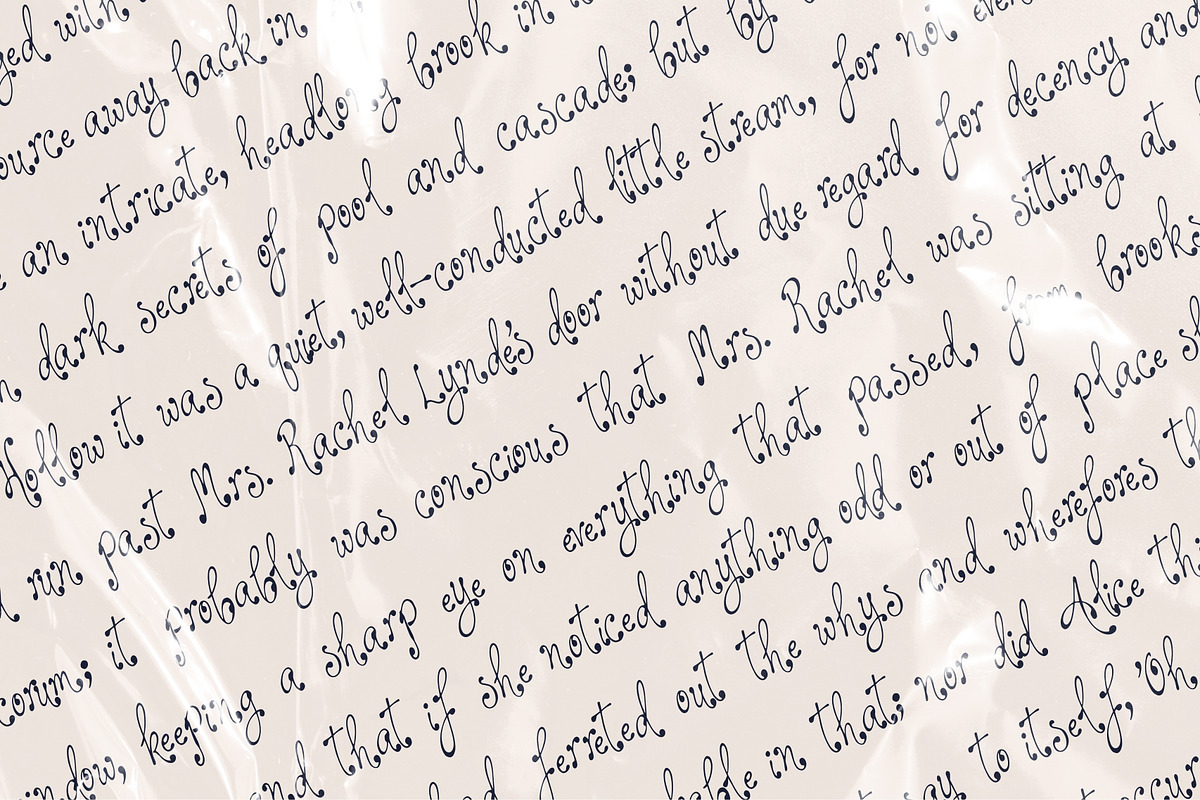 ged with
ource away back in
an intricate, headlong brook in it
dark secrets of pool and cascade; but by
Hollow it was a quiet, well-conducted little stream, for not even
run past Mrs. Rachel Lynde's door without due regard for decency and
corum; it probably was conscious that Mrs. Rachel was sitting at
indow, keeping a sharp eye on everything that passed, from brooks
and that if she noticed anything odd or out of place sh
ferreted out the whys and wherefores th
able in that; nor did Alice thi
ay to itself, 'Oh,
occur